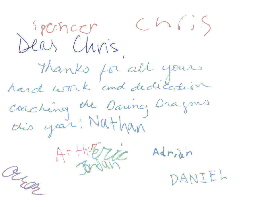 Spencer Chris
Dear Chris,
Thanks for all yours
hard work and dedication
coaching the Daring Dragons
this year! Nathan
Eric Adrian
Jordan
DANIEL